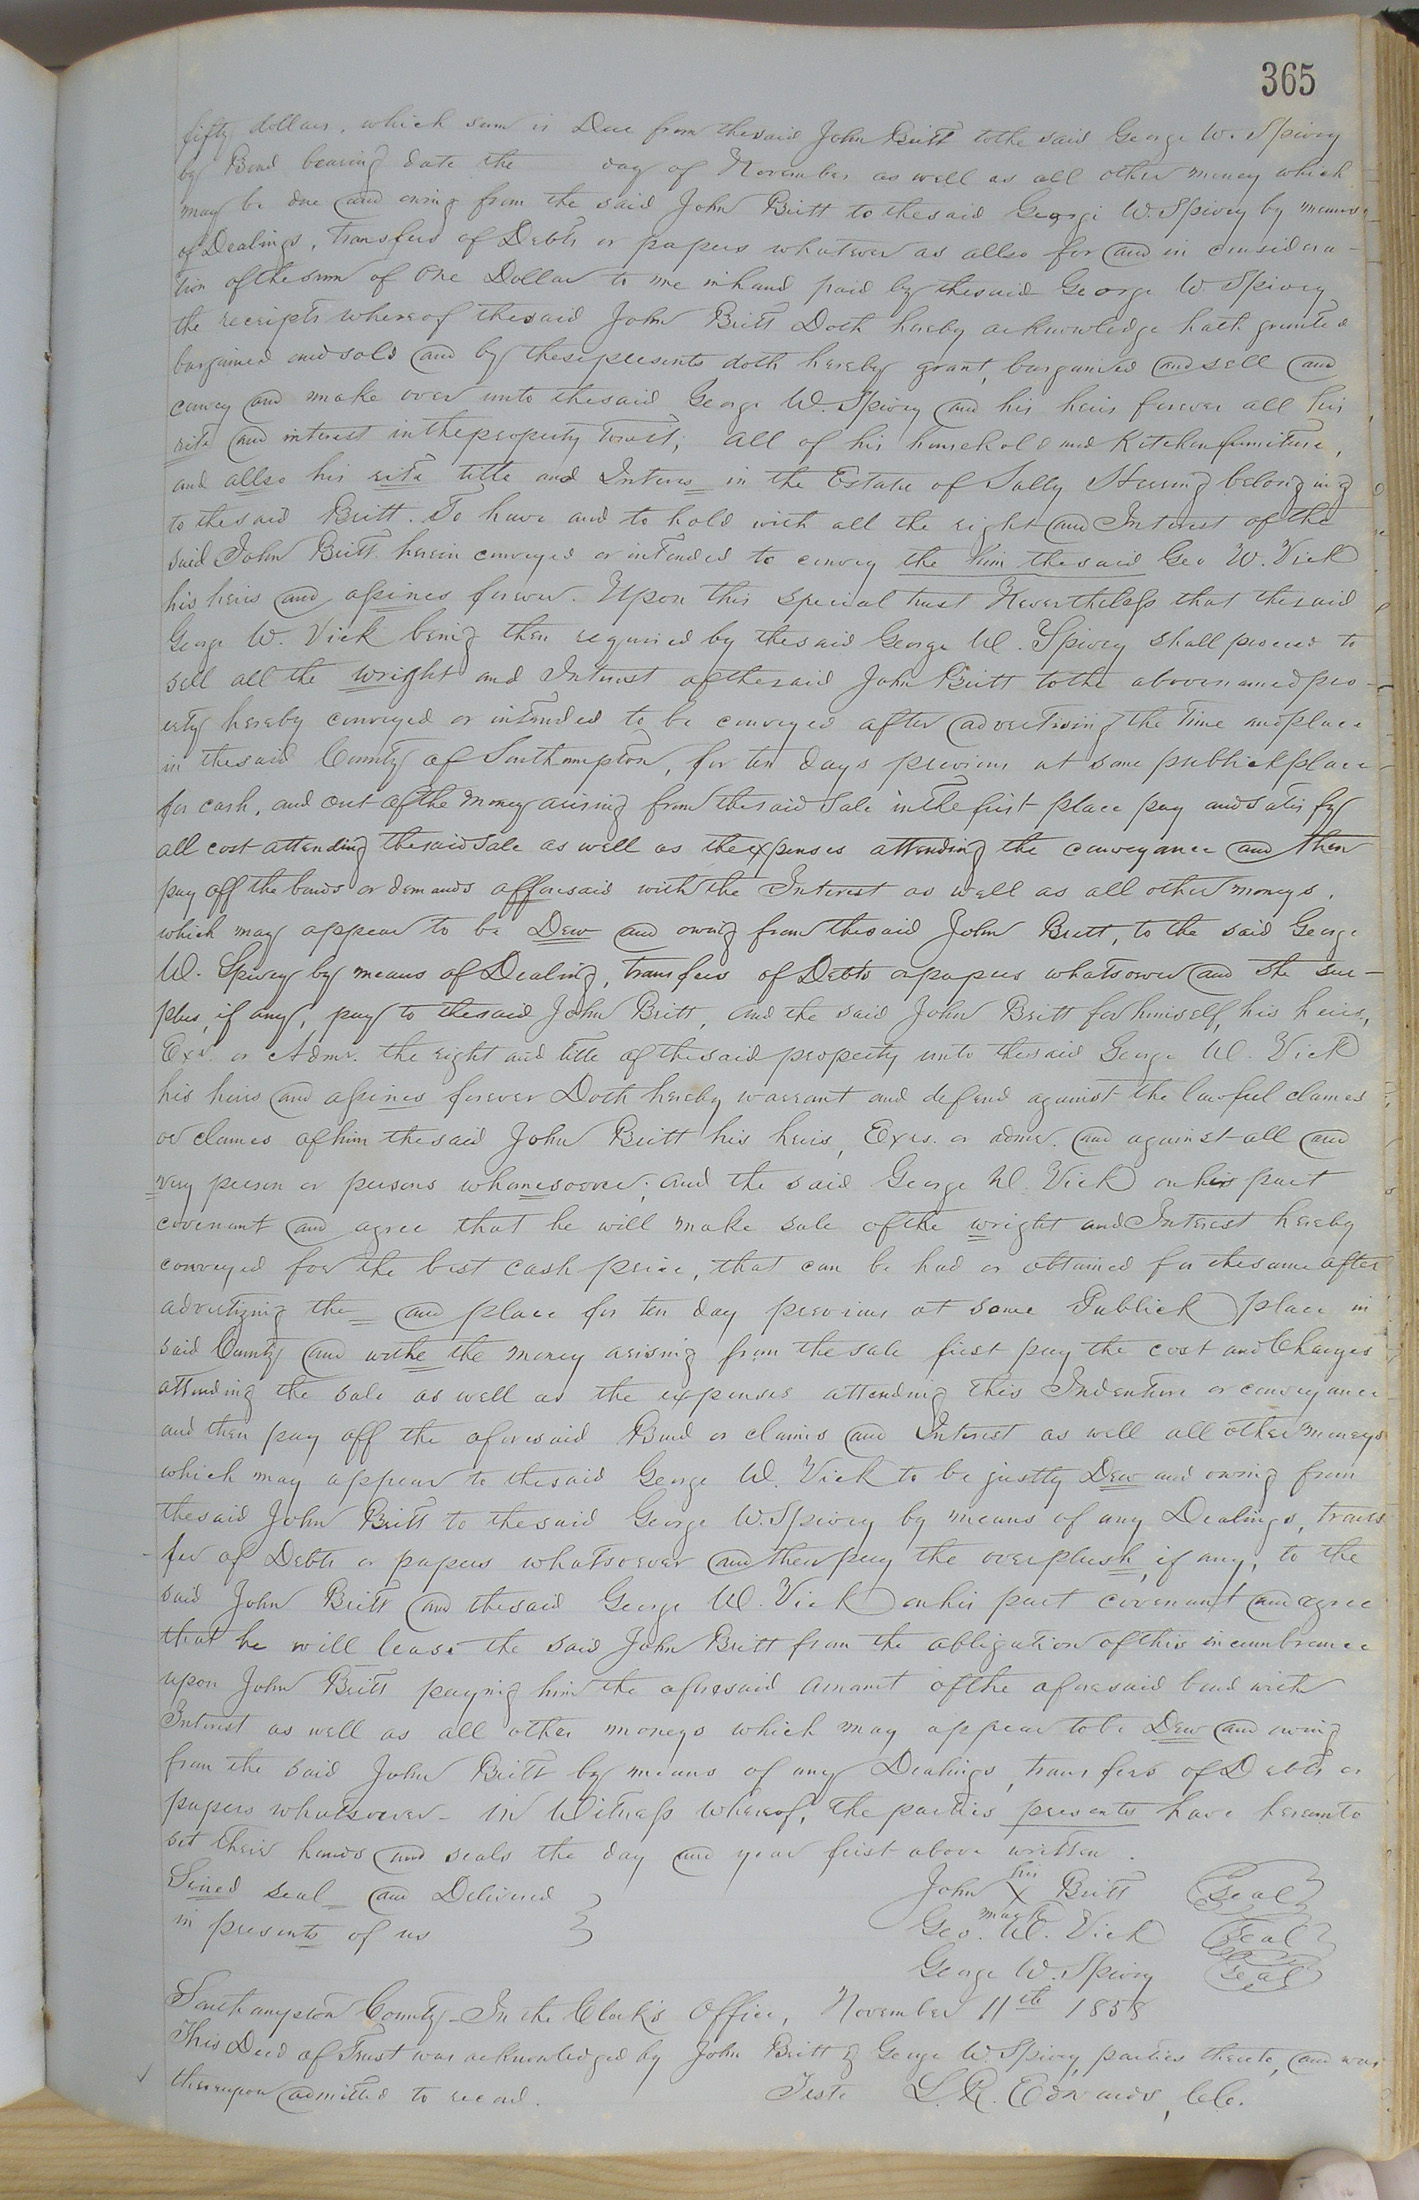 365
fifty dollars, which sum is Due from the said John Britt to the said George W. Spivey
by Bond bearing date the day of November as well as all other money which
may be due and owing from the said John Britt to the said George W. Spivey by means
of Dealings, Transfers of Debts or papers whatever as allso for and in considera-
tion of the sum of One Dollar to me in hand paid by the said George W Spivey
the receipts whereof the said John Britt Doth hereby acknowledge hath granted
bargained and sold and by these presents doth hereby grant, bargained and sell and
convey and make over unto the said George W. Spivey and his heirs forever all his
rite and interest in the property Towit; all of his household and Kitchen furniture,
and allso his rite title and Interes in the Estate of Sally belonging
to the said Britt. To have and to hold with all the right and Interest of the
said John Britt herein conveyed or intended to convey the him the said Geo W. Vick
his heirs and assines forever. Upon this special trust Nevertheless that the said
George W. Vick being then required by the said George W. Spivey shall proceed to
sell all the wright and Interest of the said John Britt to the above named prop-
erty hereby conveyed or intended to be conveyed after advertising the Time and place
in the said County of Southampton, for ten days previous at some publick place
for cash, and out of the money arising from the said Sale in the first place pay and satisfy
all cost attending the said sale as well as the expenses attending the conveyance and then
pay off the bonds or demands afforesaid with the Interest as well as all other moneys,
which may appear to be Dew and owing from the said John Britt, to the said George
W. Spivey by means of Dealing, transfers of Debts or papers whatsoever and the sur-
plus, if any, pay to the said John Britt, and the said John Britt for himself, his heirs,
Exr. or Admr. the right and title of the said property unto the said George W. Vick
his heirs and assines forever Doth hereby warrant and defend against the lawful clames
or clames of him the said John Britt his heirs, Exrs. or admr. and against all and
very person or persons whomesoever; and the said George W. Vick on his part
covenant and agree that he will make sale of the wright and Interest hereby
conveyed for the best cash price, that can be had or obtained for the same after
advertizing the and place for ten day previous at some Publick place in
said County and withe the money arising from the sale first pay the cost and Charges
attending the sale as well as the expenses attending this Indenture or conveyance
and then pay off the aforesaid Bond or claims and Interest as well all other moneys
which may appear to the said George W. Vick to be justly Dew and owing from
the said John Britt to the said George W. Spivey by means of any Dealings, trans
fer of Debts or papers whatsoever and then pay the overplush, if any, to the
said John Britt and the said George W. Vick on his part covenant and agree
that he will lease the said John Britt from the obligation of this incumbrance
upon John Britt paying him the aforesaid amount of the aforesaid bond with
Interest as well as all other moneys which may appear to be Dew and owing
from the said John Britt by means of any Dealings, transfers of Debts or
papers whatsoever - In Witness whereof, the parties presents have hereunto
set their hands and seals the day and year first above written.
Sined seal and Delivered
in presents of us
John his X mark Britt Seal
Geo. W. Vick Seal
George W. Spivey Seal
Southampton County - In the Clerk's Office, November 11th 1858
This Deed of Trust was acknowledged by John Britt & George W. Spivey, parties thereto, and was
thereupon admitted to record. Teste L. R. Edwards, Clk.